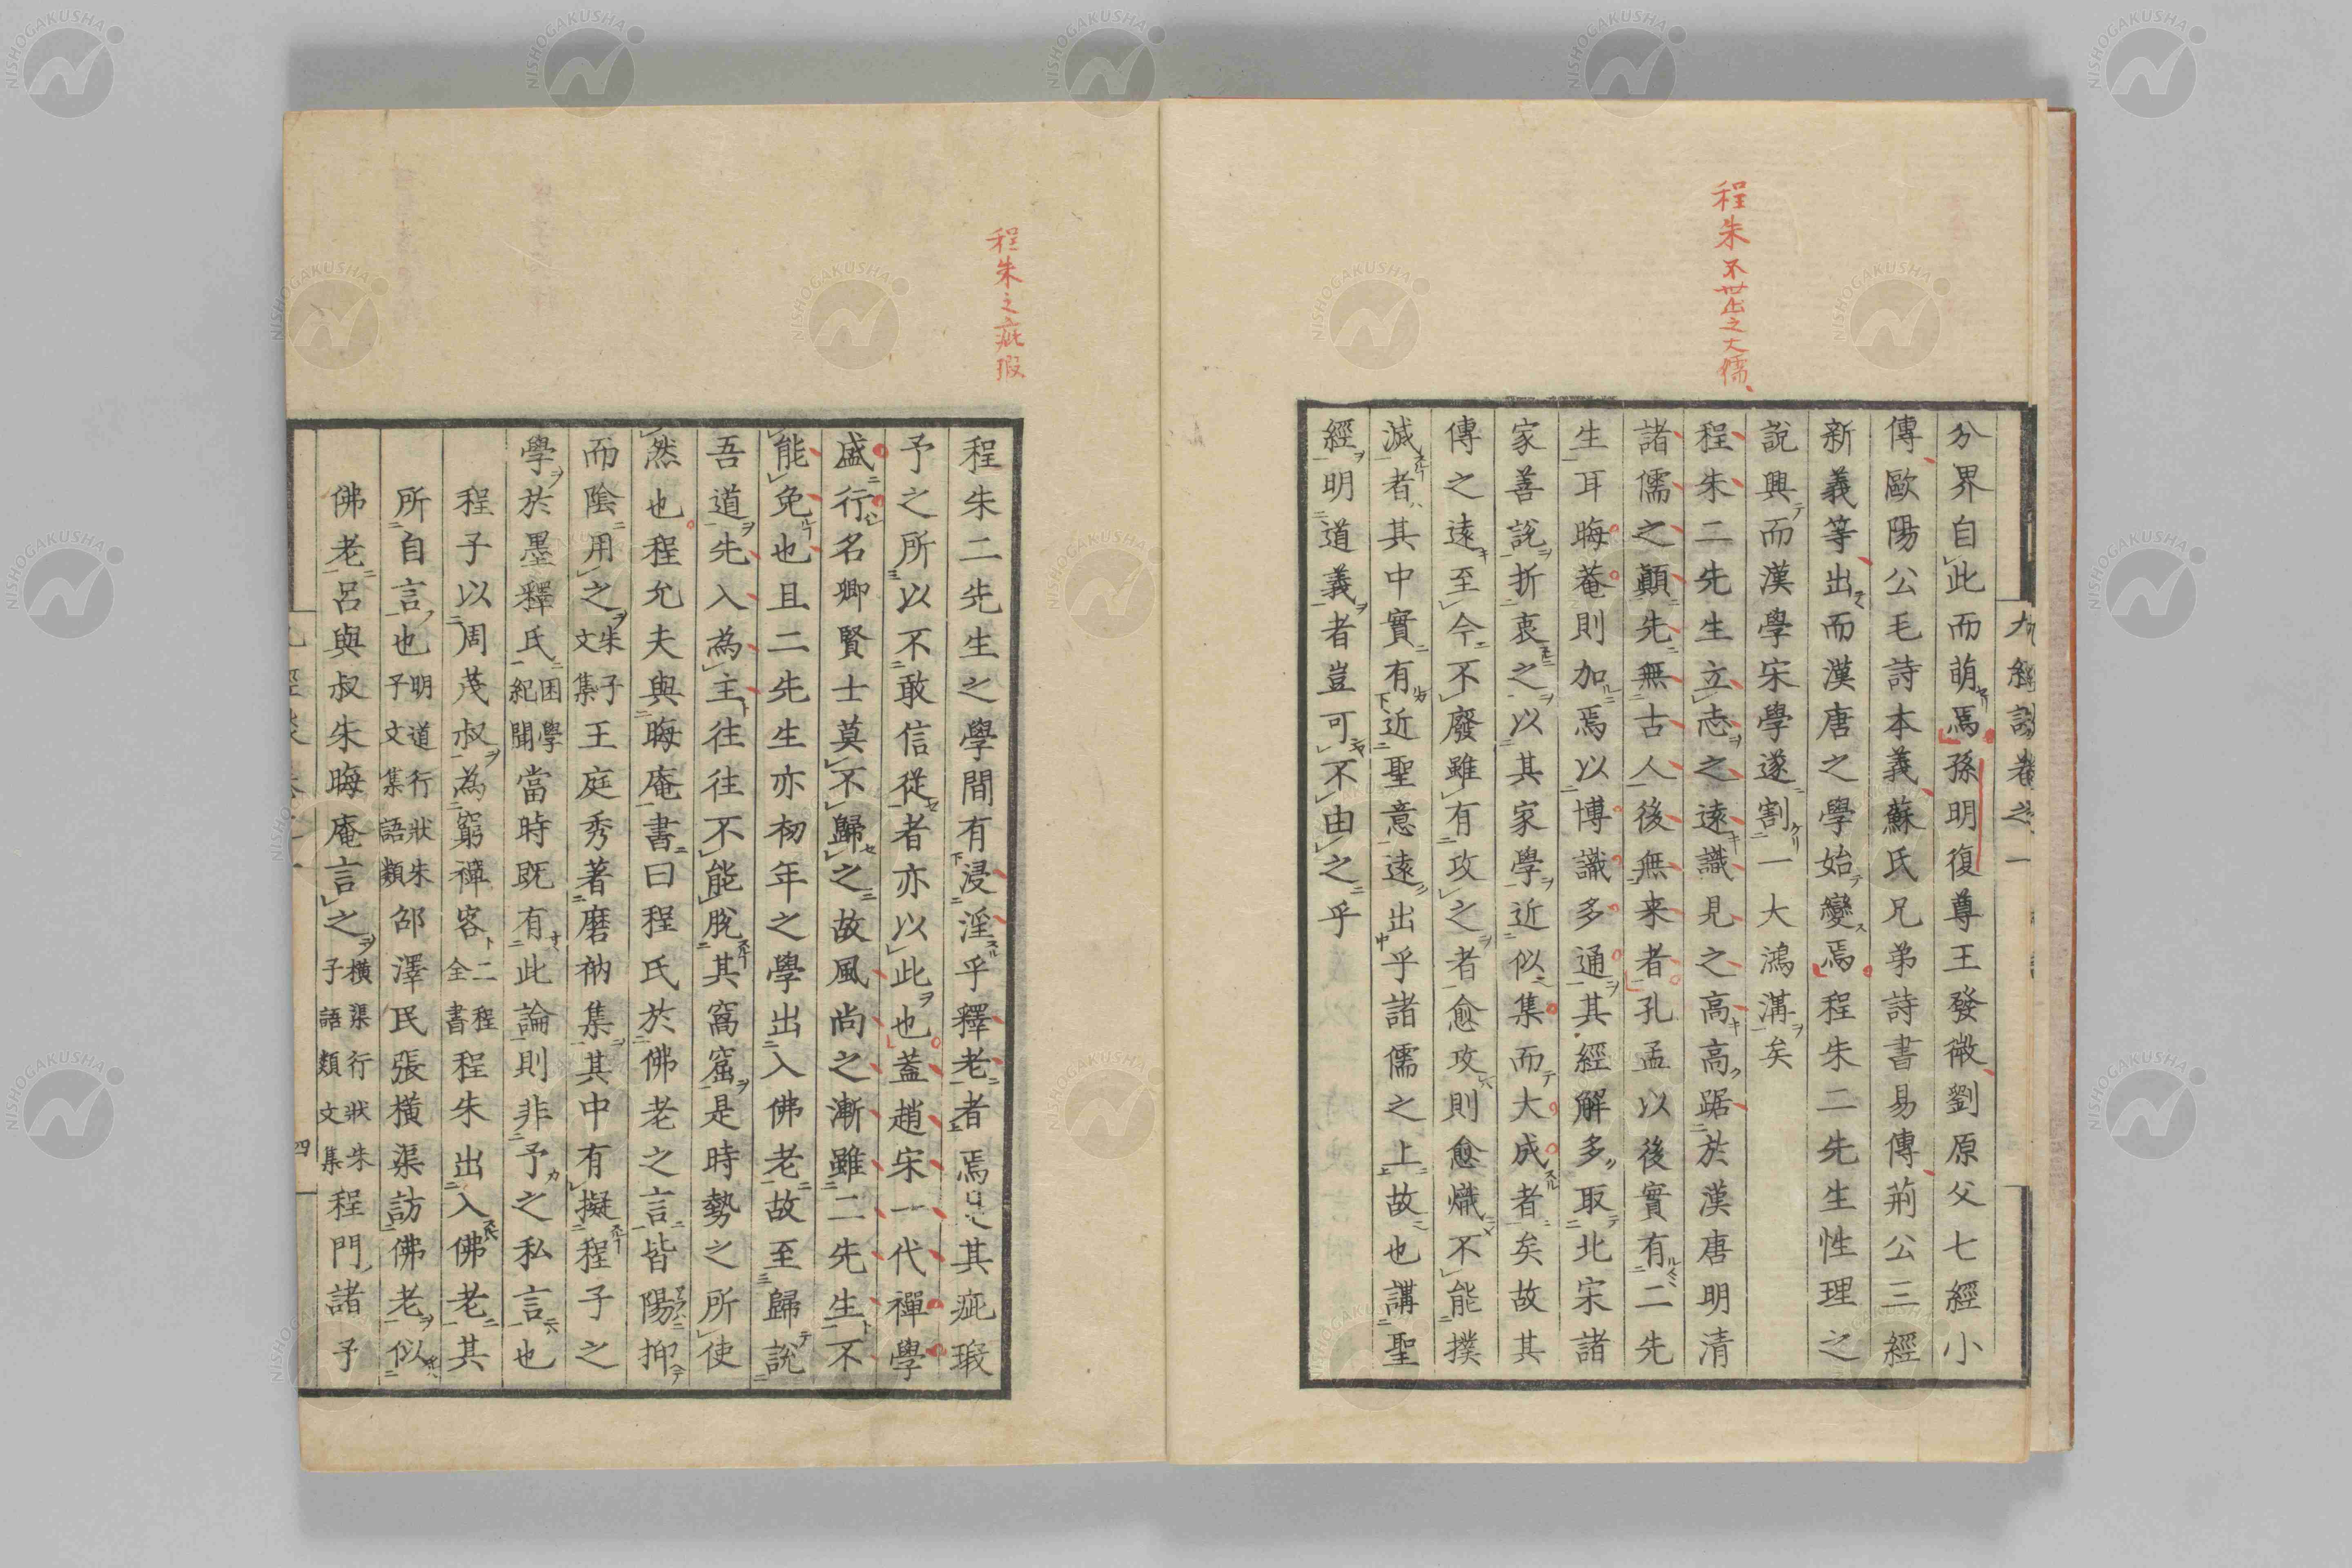 程朱不世出之大儒
九經談卷之一
分界自此而萌焉孫明復尊王發微劉原父七經小
傳歐陽公毛詩本義蘇氏兄弟詩書易傳荊公三經
新義等出而漢唐之學始變焉程朱二先生性理之
說興而漢學宋學遂割一大鴻溝矣
程朱二先生立志之遠識見之高高踞於漢唐明清
諸儒之顛先無古人後無来者孔孟以後實有二先
生耳晦菴則加焉以博識多通其經解多取北宋諸
家善說折衷之以其家學近似集而大成者矣故其
傳之遠至今不廢雖有攻之者愈攻則愈熾不能撲
滅者其中實有近聖意遠出乎諸儒之上故也講聖
經明道義者豈可不由之乎
程朱之疵瑕
程朱二先生之學間有浸淫乎釋老者焉是其疵瑕
予之所以不敢信從者亦以此也蓋趙宋一代禪學
盛行名卿賢士莫不歸之故風尚之漸雖二先生不
能免也且二先生亦初年之學出入佛老故至歸說
吾道先入為主往往不能脫其窩窟是時勢之所使
然也程允夫與晦庵書曰程氏於佛老之言皆陽抑
而陰用之朱子文集王庭秀著磨衲集其中有擬程子之
學於墨釋氏困學紀聞當時既有此論則非予之私言也
程子以周茂叔為窮禪客二程全書程朱出入佛老其
所自言也明道行狀朱子文集語類邵澤民張橫渠訪佛老似
佛老呂與叔朱晦庵言之橫渠行狀朱子語類文集程門諸子
四
NISHOGAKUSHA